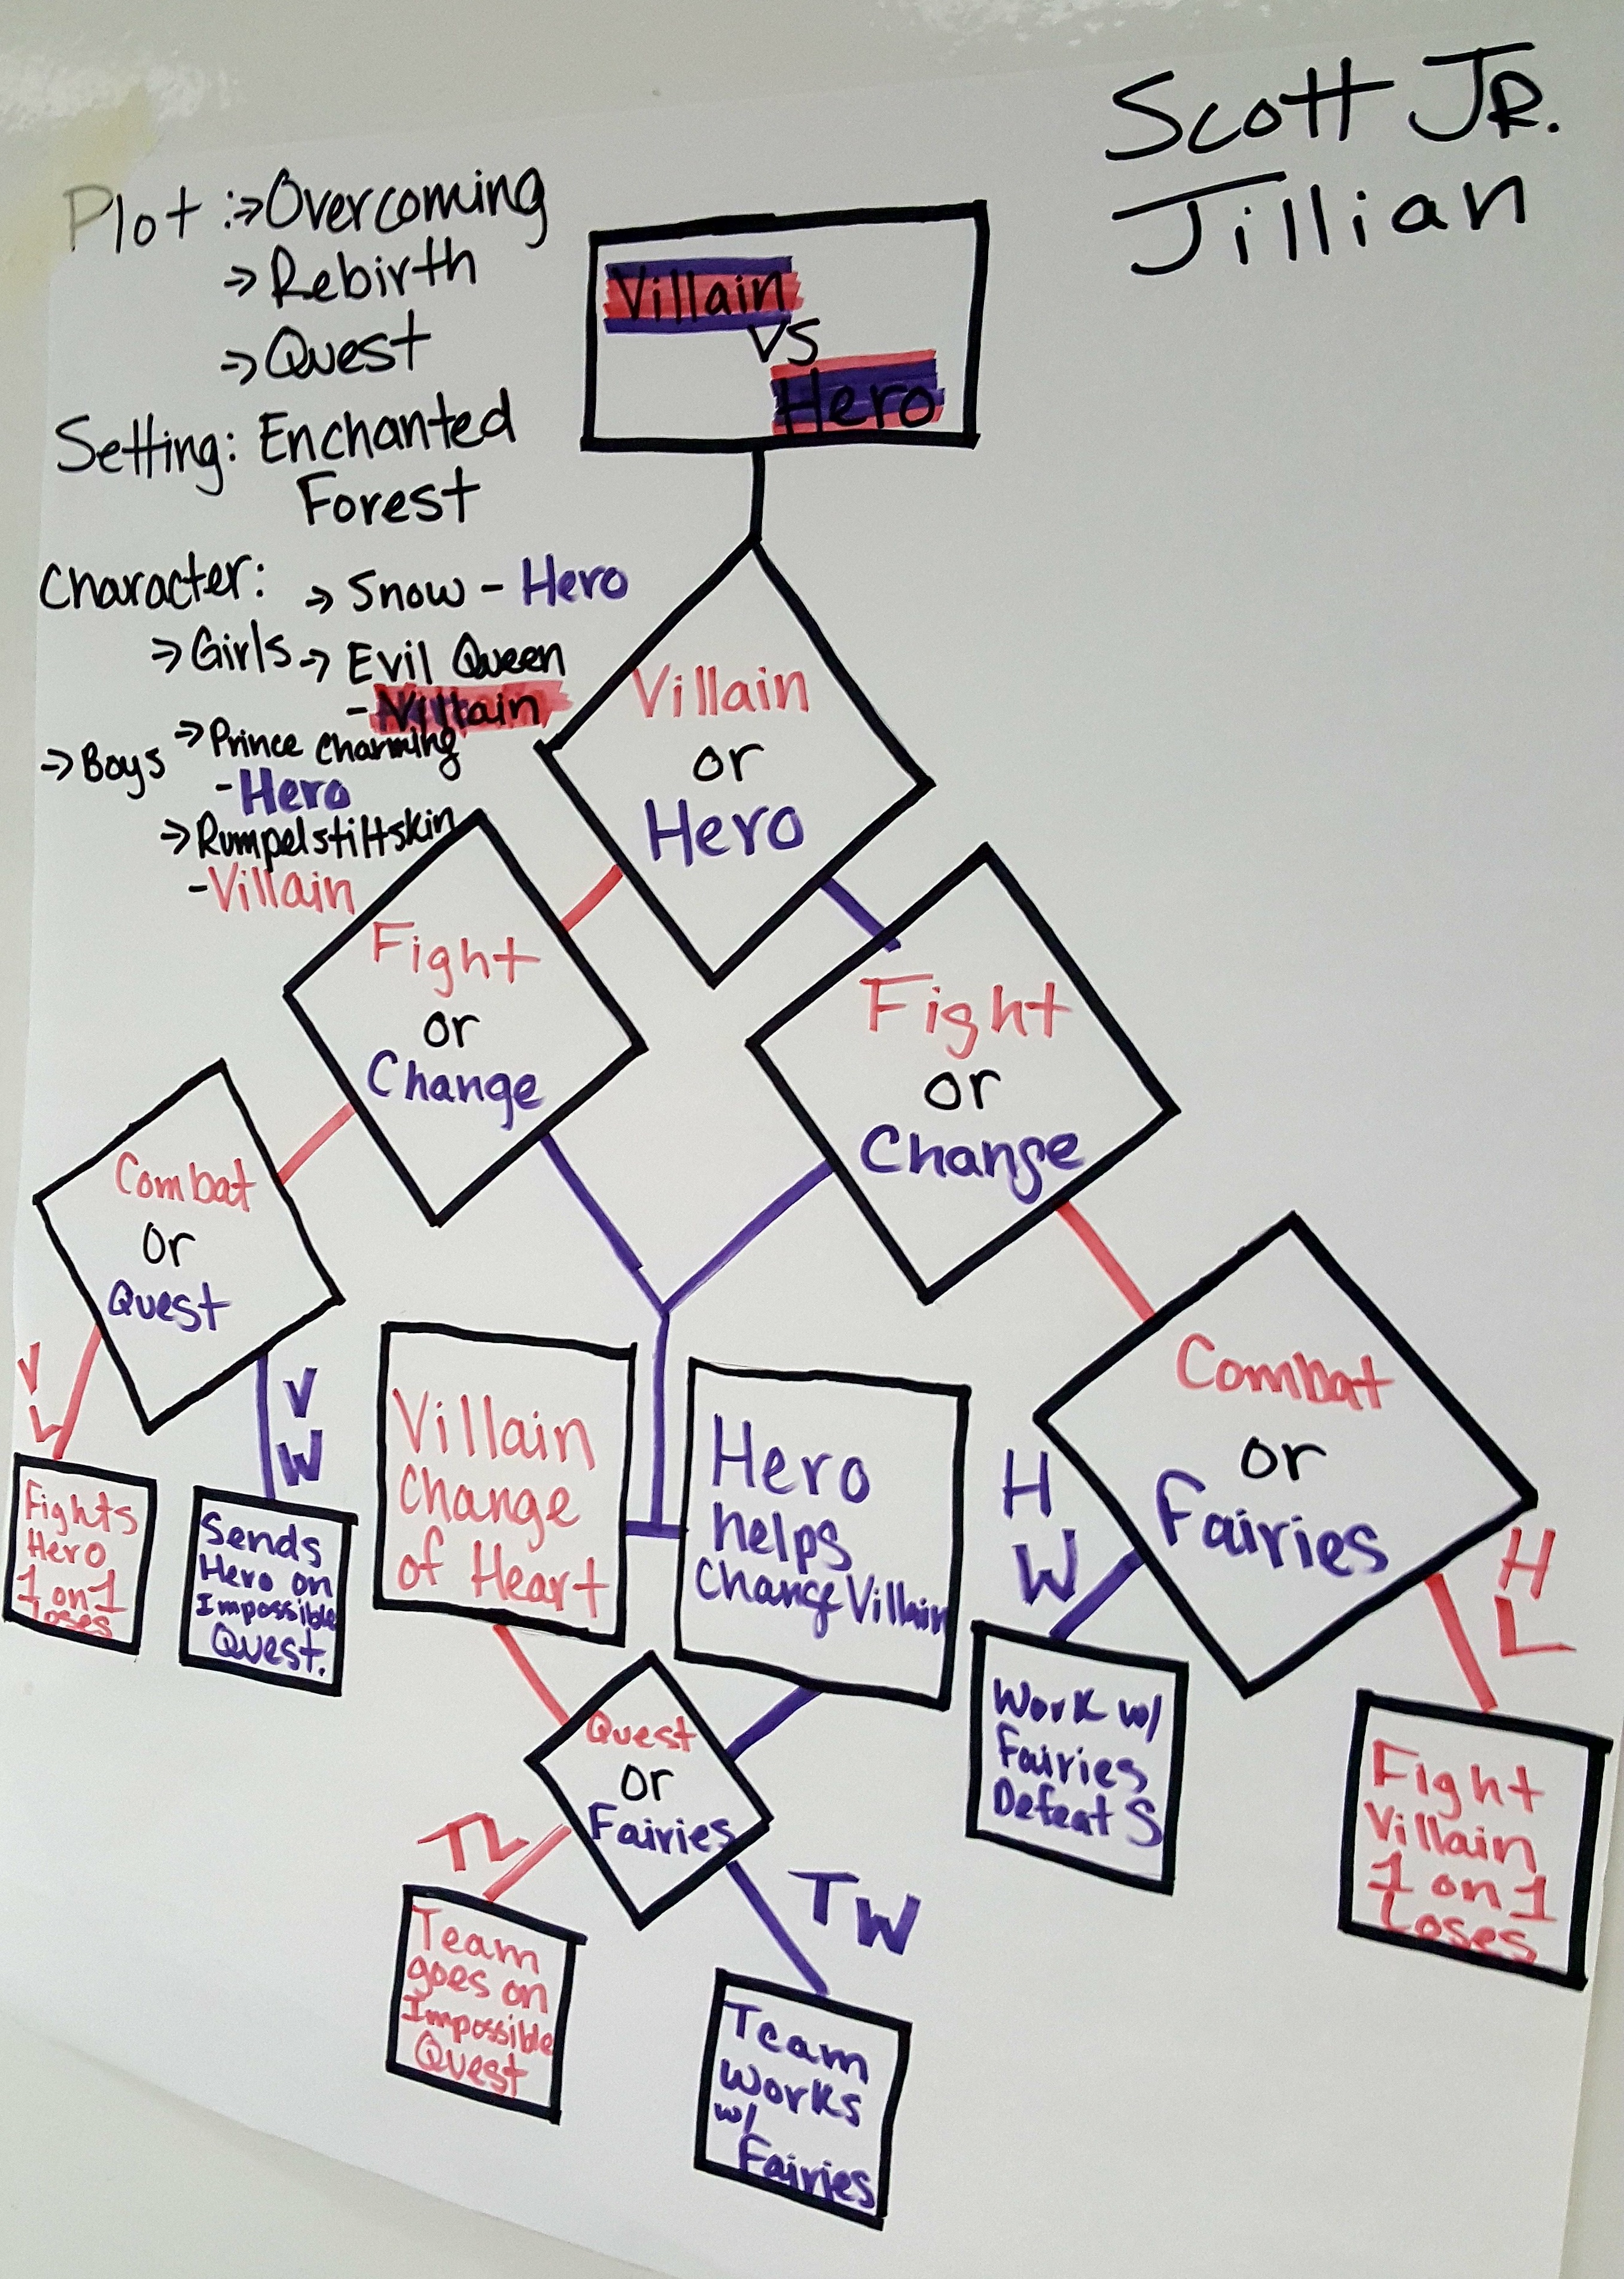 Scott JR.
Jillian
Plot :→ Overcoming
→ Rebirth
→ Quest
Setting: Enchanted
Forest
Character: → Snow - Hero
→ Girls → Evil Queen
- Villain
→ Boys → Prince Charming
- Hero
→ Rumpelstiltskin
- Villain
Villain
VS
Hero
Villain
or
Hero
Fight
or
Change
Fight
or
Change
Combat
or
Quest
Combat
or
Fairies
V
L
V
W
H
W
H
L
Fights
Hero
1 on 1
loses
Sends
Hero on
Impossible
Quest.
Villain
Change
of Heart
Hero
helps
Change Villain
Work w/
Fairies
Defeat S
Fight
Villain
1 on 1
Loses
Quest
or
Fairies
TL
TW
Team
goes on
Impossible
Quest
Team
Works
w/
Fairies